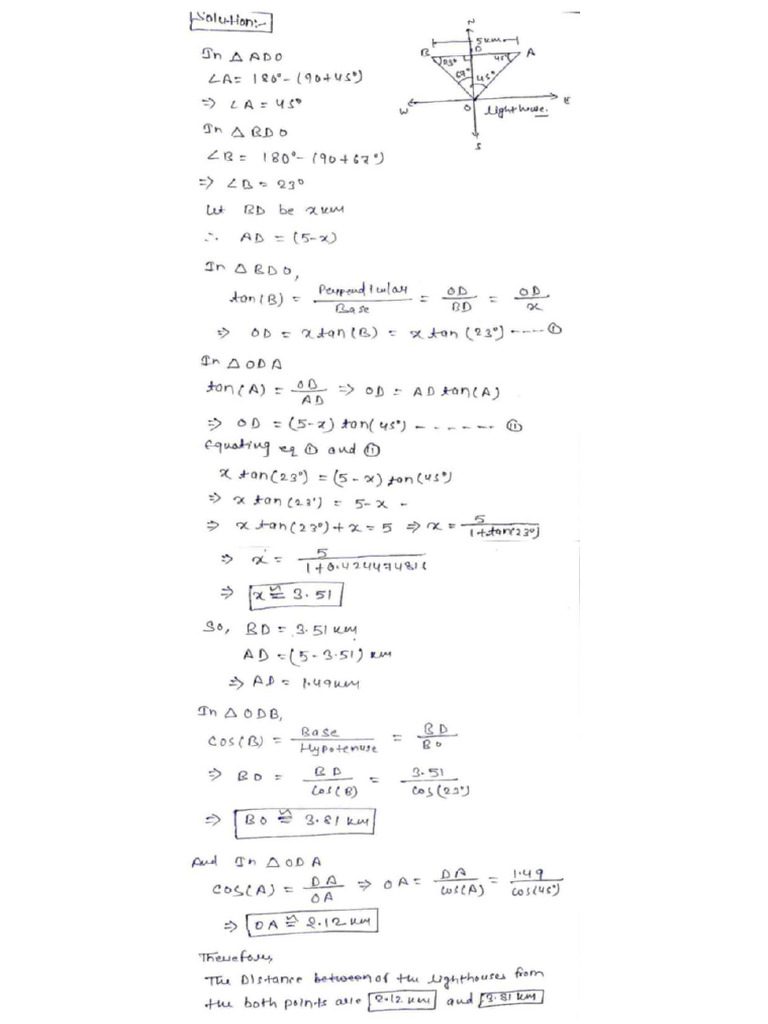 Solution:-
N
5 km
B
D
A
23°
45°
67°
45°
W
O
E
Lighthouse.
S
In △ ADO
∠A = 180° - (90+45°)
⇒ ∠A = 45°
In △ BDO
∠B = 180° - (90+67°)
⇒ ∠B = 23°
Let BD be x km
∴ AD = (5-x)
In △ BDO,
tan(B) = Perpendicular / Base = OD / BD = OD / x
⇒ OD = x tan(B) = x tan(23°) ---- ①
In △ ODA
tan(A) = OD / AD ⇒ OD = AD tan(A)
⇒ OD = (5-x) tan(45°) - - - - - - - ⑪
Equating eq ① and ⑪
x tan(23°) = (5-x) tan(45°)
⇒ x tan(23°) = 5-x -
⇒ x tan(23°) + x = 5 ⇒ x = 5 / 1+tan(23°)
⇒ x = 5 / 1+0.424474816
⇒ x ≅ 3.51
So, BD = 3.51 km
AD = (5-3.51) km
⇒ AD = 1.49 km
In △ ODB,
cos(B) = Base / Hypotenuse = BD / BO
⇒ BO = BD / cos(B) = 3.51 / cos(23°)
⇒ BO ≅ 3.81 km
And In △ ODA
cos(A) = DA / OA ⇒ OA = DA / cos(A) = 1.49 / cos(45°)
⇒ OA ≅ 2.12 km
Therefore,
The Distance between of the lighthouses from
the both points are 2.12 km and 3.81 km